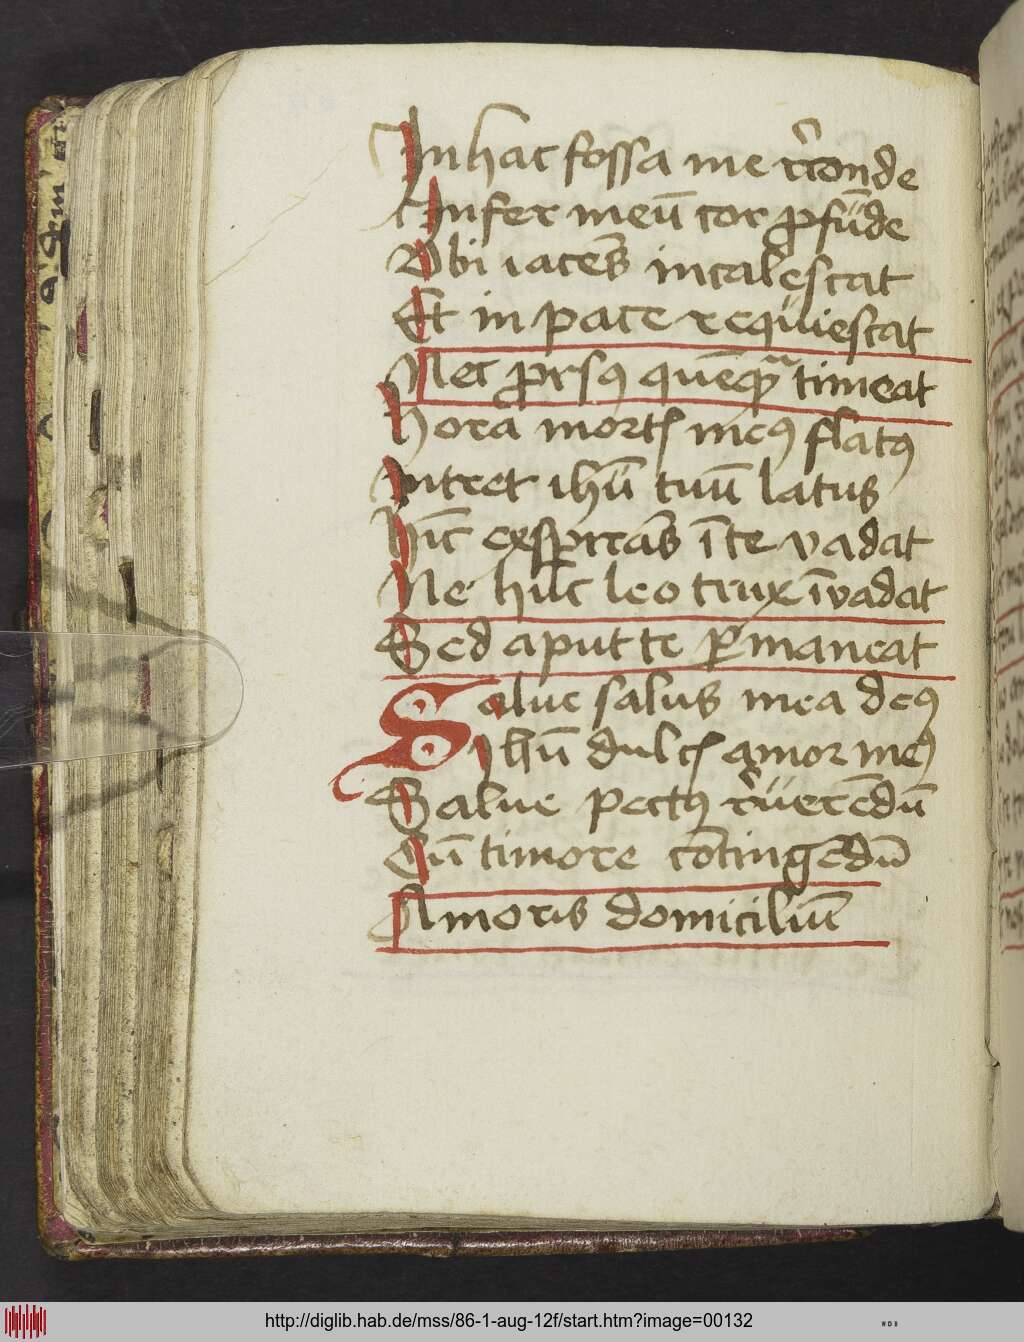 In hac fossa me r̄conde
Infer meū cor ꝓfūde
Vbi iacēs incalescat
Et in pace requiescat
Nec ꝓrsꝯ quēqᷓ timeat
Hora mortꝭ meꝯ flatꝯ
Intret ihū tuū latus
Hīc exspirās ī te vadat
Ne hūc leo trux īvadat
Sed aput te ꝑmaneat
Salue salus mea deꝯ
Ihū dulcꝭ amor meꝯ
Salue pectꝯ r̄uerēdū
Cū timore cōtingēdū
Amoris domiciliū
http://diglib.hab.de/mss/86-1-aug-12f/start.htm?image=00132